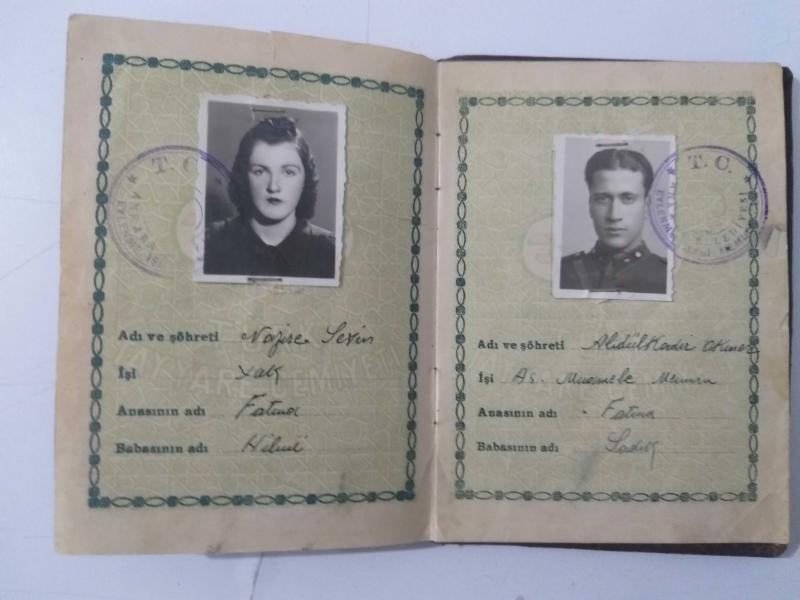 T. C.
ANKARA
Adı ve şöhreti Nazire Sevin
İşi Yok
Anasının adı Fatma
Babasının adı Hilmi
T. C.
Adı ve şöhreti Abdülkadir
İşi As. Muamele Memuru
Anasının adı Fatma
Babasının adı Sadık